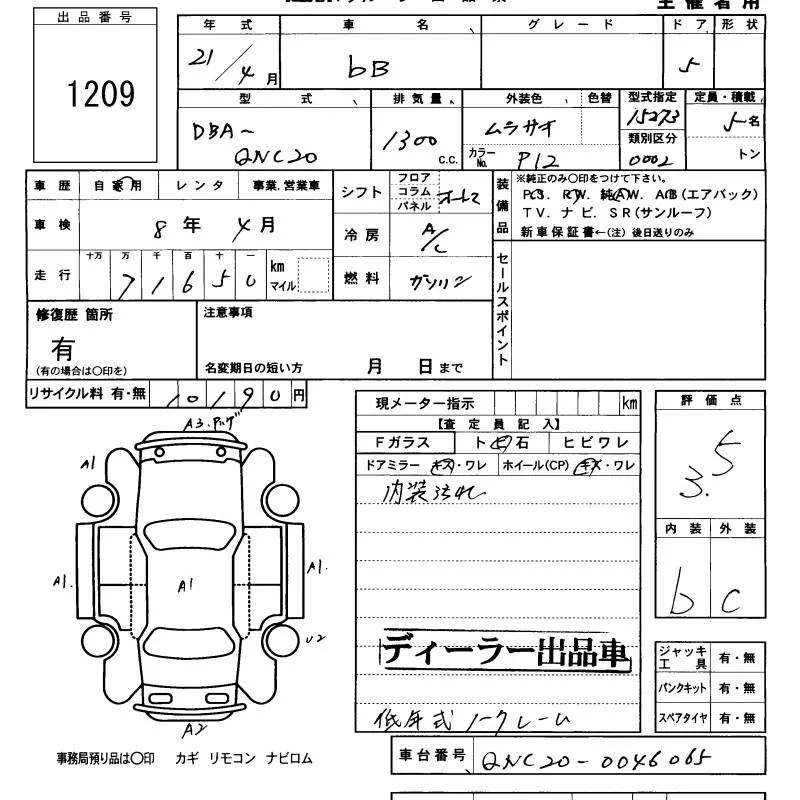 主催者用
出品番号
1209
年式 車名 グレード ドア 形状
21/4月 bB 5
型式 排気量 外装色 色替 型式指定 定員・積載
DBA- 1300 ムラサキ 15273 5名
QNC20 C.C. カラーNo. P12 類別区分 0002 トン
車歴 自家用 レンタ 事業.営業車
シフト フロア コラム パネル オートマ
車検 8年 4月
冷房 A/C
走行 十万 万 千 百 十 一 km マイル
7 1 6 5 0
燃料 ガソリン
装備品 ※純正のみ○印をつけて下さい。
P.S. P.W. 純A.W. A/B(エアバック)
TV. ナビ. SR(サンルーフ)
新車保証書←(注) 後日送りのみ
セールスポイント
修復歴 箇所
有
(有の場合は○印を)
注意事項
名変期日の短い方 月 日まで
リサイクル料 有・無 10190円
現メーター指示 km
【査定員記入】
Fガラス ト ビ 石 ヒビワレ
ドアミラー キズ・ワレ ホイール(CP) キズ・ワレ
内装汚れ
ディーラー出品車
低年式 ノークレーム
評価点
3.5
内装 外装
b C
ジャッキ 工具 有・無
パンクキット 有・無
スペアタイヤ 有・無
A3
A1
A1.
A1
A1.
U2
A2
事務局預り品は○印 カギ リモコン ナビロム
車台番号 QNC20-0046065